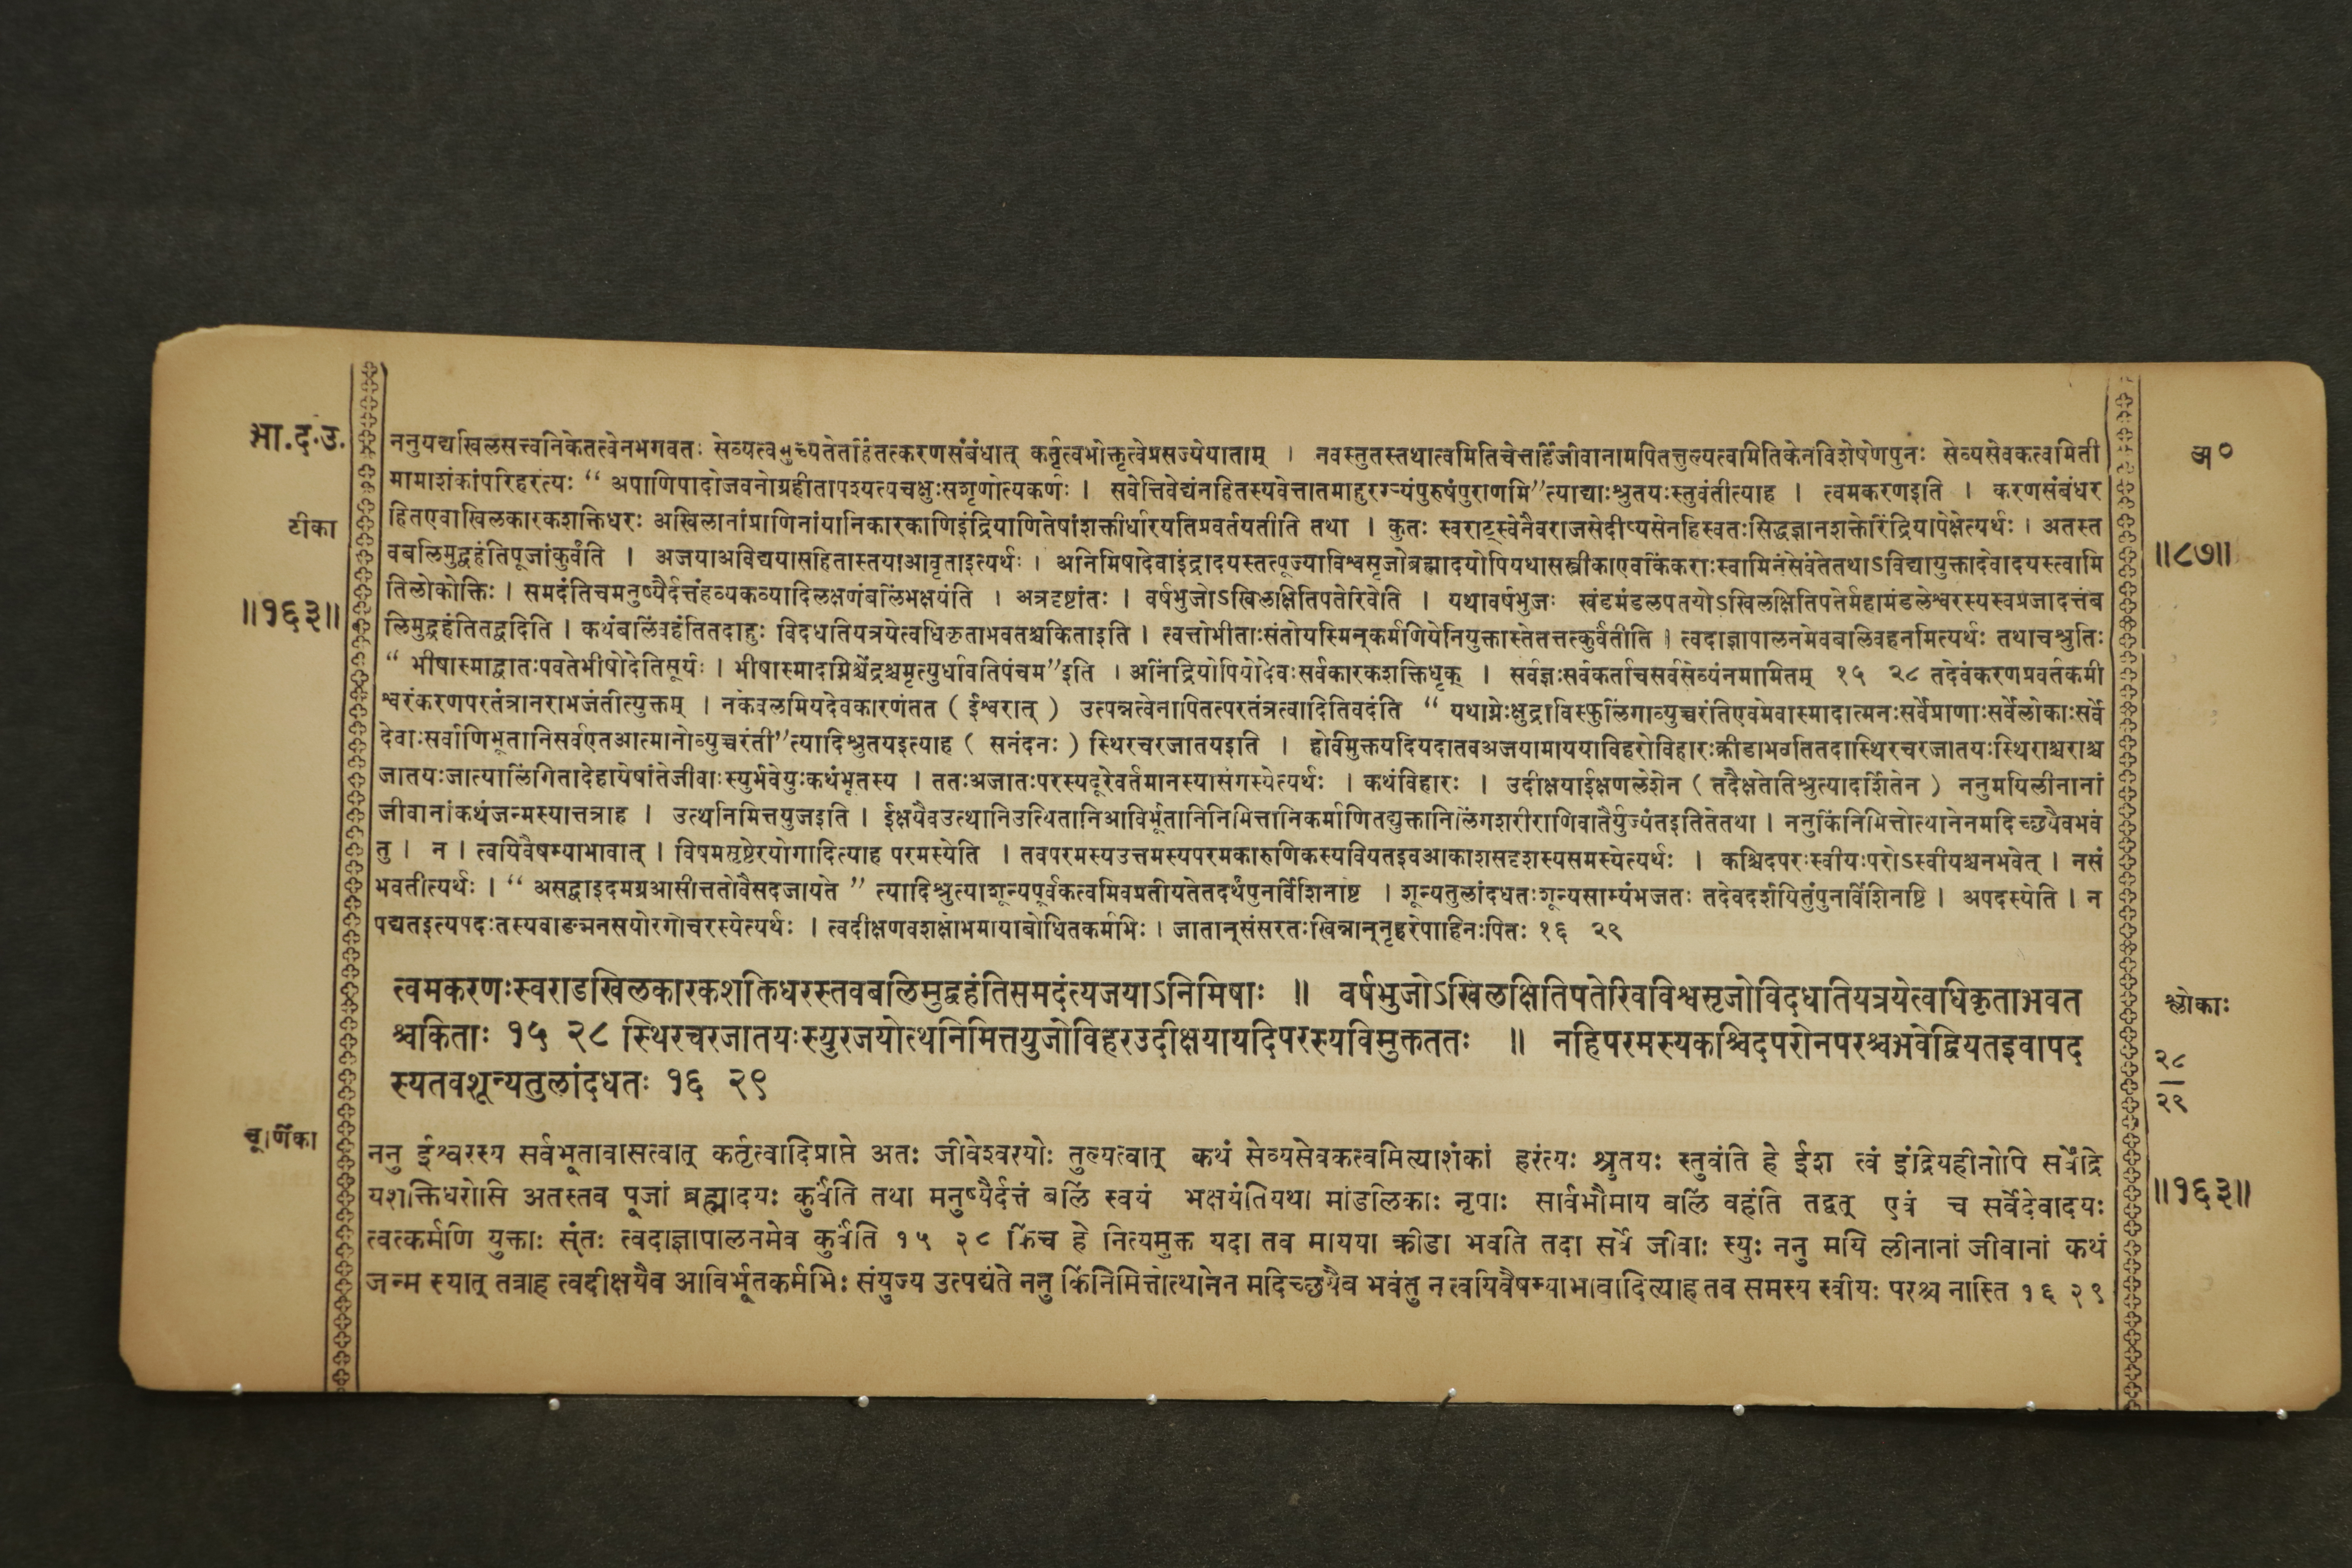 भा.द.उ.
अ०
ननुयद्यखिलसत्त्वनिकेतत्वेनभगवतः सेव्यत्वमुच्यतेतर्हितत्करणसंबंधात् कर्तृत्वभोक्तृत्वेप्रसज्येयाताम् । नवस्तुतस्तथात्वमितिचेत्तर्हिजीवानामपितत्तुल्यत्वमितिकेनविशेषेणपुनः सेव्यसेवकत्वमिती
मामाशंकांपरिहरंत्यः “ अपाणिपादोजवनोग्रहीतापश्यत्यचक्षुःसशृणोत्यकर्णः । सवेत्तिवेद्यंनहितस्यवेत्तातमाहुरग्र्यंपुरुषंपुराणमि”त्याद्याःश्रुतयःस्तुवंतीत्याह । त्वमकरणइति । करणसंबंधर
टीका
हितएवाखिलकारकशक्तिधरः अखिलानांप्राणिनांयानिकारकाणिइंद्रियाणितेषांशक्तीर्धारयतिप्रवर्तयतीति तथा । कुतः स्वराट्स्वेनैवराजसेदीप्यसेनहिस्वतःसिद्धज्ञानशक्तेरिंद्रियापेक्षेत्यर्थः । अतस्त
वबलिमुद्वहंतिपूजांकुर्वंति । अजयाअविद्ययासहितास्तयाआवृताइत्यर्थः । अनिमिषादेवाइंद्रादयस्तत्पूज्याविश्वसृजोब्रह्मादयोपियथासस्त्रीकाएवकिंकराःस्वामिनंसेवंतेतथाऽविद्यायुक्तादेवादयस्त्वामि
॥८७॥
तिलोकोक्तिः । समदंतिचमनुष्यैर्दत्तंहव्यकव्यादिलक्षणंबलिंभक्षयंति । अत्रदृष्टांतः । वर्षभुजोऽखिलक्षितिपतेरिवेति । यथावर्षभुजः खंडमंडलपतयोऽखिलक्षितिपतेर्महामंडलेश्वरस्यस्वप्रजादत्तंब
॥१६३॥
लिमुद्वहंतितद्वदिति । कथंबलिंवहंतितदाहुः विदधतियत्रयेत्वधिकृताभवतश्चकिताइति । त्वत्तोभीताःसंतोयस्मिन्कर्मणियेनियुक्तास्तेतत्तत्कुर्वंतीति । त्वदाज्ञापालनमेवबलिवहनमित्यर्थः तथाचश्रुतिः
“ भीषास्माद्वातःपवतेभीषोदेतिसूर्यः । भीषास्मादग्निश्चेंद्रश्चमृत्युर्धावतिपंचम”इति । अनिंद्रियोपियोदेवःसर्वकारकशक्तिधृक् । सर्वज्ञःसर्वकर्ताचसर्वसेव्यंनमामितम् १५ २८ तदेवंकरणप्रवर्तकमी
श्वरंकरणपरतंत्रानराभजंतीत्युक्तम् । नकेवलमियदेवकारणंतत ( ईश्वरात् ) उत्पन्नत्वेनापितत्परतंत्रत्वादितिवदंति “ यथाग्नेःक्षुद्राविस्फुलिंगाव्युच्चरंतिएवमेवास्मादात्मनःसर्वेप्राणाःसर्वेलोकाःसर्वे
देवाःसर्वाणिभूतानिसर्वएतआत्मानोव्युच्चरंती”त्यादिश्रुतयइत्याह ( सनंदनः ) स्थिरचरजातयइति । होविमुक्तयदियदातवअजयामाययाविहरोविहारःक्रीडाभवतितदास्थिरचरजातयःस्थिराश्चराश्च
जातयःजात्यालिंगितादेहायेषांतेजीवाःस्युर्भवेयुःकथंभूतस्य । ततःअजातःपरस्यदूरेवर्तमानस्यासंगस्येत्यर्थः । कथंविहारः । उदीक्षयाईक्षणलेशेन ( तदैक्षतेतिश्रुत्यादर्शितेन ) ननुमयिलीनानां
जीवानांकथंजन्मस्यात्तत्राह । उत्थनिमित्तयुजइति । ईक्षयैवउत्थानिउत्थितानिआविर्भूतानिनिमित्तानिकर्माणितद्युक्तानिलिंगशरीराणिवातैर्युज्यंतइतितेतथा । ननुकिंनिमित्तोत्थानेनमदिच्छयैवभवं
तु । न । त्वयिवैषम्याभावात् । विषमसृष्टेरयोगादित्याह परमस्येति । तवपरमस्यउत्तमस्यपरमकारुणिकस्यवियतइवआकाशसदृशस्यसमस्येत्यर्थः । कश्चिदपरःस्वीयःपरोऽस्वीयश्चनभवेत् । नसं
भवतीत्यर्थः । “ असद्वाइदमग्रआसीत्ततोवैसदजायते ” त्यादिश्रुत्याशून्यपूर्वकत्वमिवप्रतीयतेतदर्थंपुनर्विशिनष्टि । शून्यतुलांदधतःशून्यसाम्यंभजतः तदेवदर्शयितुंपुनर्विशिनष्टि । अपदस्येति । न
पद्यतइत्यपदःतस्यवाङ्मनसयोरगोचरस्येत्यर्थः । त्वदीक्षणवशक्षोभमायाबोधितकर्मभिः । जातान्संसरतःखिन्नान्नृहरेपाहिनःपितः १६ २९
त्वमकरणःस्वराडखिलकारकशक्तिधरस्तवबलिमुद्वहंतिसमदंत्यजयाऽनिमिषाः ॥ वर्षभुजोऽखिलक्षितिपतेरिवविश्वसृजोविदधातियत्रयेत्वधिकृताभवत
श्लोकाः
श्चकिताः १५ २८ स्थिरचरजातयःस्युरजयोत्थनिमित्तयुजोविहरउदीक्षयायदिपरस्यविमुक्तततः ॥ नहिपरमस्यकश्चिदपरोनपरश्चभवेद्वियतइवापद
२८
स्यतवशून्यतुलांदधतः १६ २९
२९
चूर्णिका
ननु ईश्वरस्य सर्वभूतावासत्वात् कर्तृत्वादिप्राप्ते अतः जीवेश्वरयोः तुल्यत्वात् कथं सेव्यसेवकत्वमित्याशंकां हरंत्यः श्रुतयः स्तुवंति हे ईश त्वं इंद्रियहीनोपि सर्वेंद्रि
यशक्तिधरोसि अतस्तव पूजां ब्रह्मादयः कुर्वंति तथा मनुष्यैर्दत्तं बलिं स्वयं भक्षयंतियथा मांडलिकाः नृपाः सार्वभौमाय बलिं वहंति तद्वत् एवं च सर्वेदेवादयः
॥१६३॥
त्वत्कर्मणि युक्ताः संतः त्वदाज्ञापालनमेव कुर्वंति १५ २८ किंच हे नित्यमुक्त यदा तव मायया क्रीडा भवति तदा सर्वे जीवाः स्युः ननु मयि लीनानां जीवानां कथं
जन्म स्यात् तत्राह त्वदीक्षयैव आविर्भूतकर्मभिः संयुज्य उत्पद्यंते ननु किंनिमित्तोत्थानेन मदिच्छयैव भवंतु न त्वयिवैषम्याभावादित्याह तव समस्य स्वीयः परश्च नास्ति १६ २९